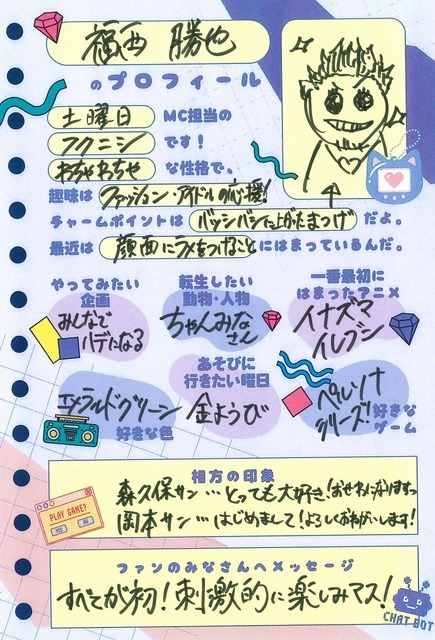 福西 勝也
のプロフィール
土曜日 MC担当の
フクニシ です！
わちゃわちゃ な性格で、
趣味は ファッション・アイドルの応援！
チャームポイントは バッシバシに上がたまつげ だよ。
最近は 顔面にラメをつけること にはまっているんだ。
やってみたい
企画
みんなで
ハデになる
転生したい
動物・人物
ちゃんみな
さん
一番最初に
はまったアニメ
イナズマ
イレブン
エメラルドグリーン
好きな色
あそびに
行きたい曜日
金ようび
ペルソナ
シリーズ
好きな
ゲーム
相方の印象
森久保サン…とっても大好き！おせわになりますっ
岡本サン…はじめまして！よろしくおねがいします！
PLAY GAME?
YES NO
ファンのみなさんへメッセージ
すべてが初！刺激的に楽しみマス！
CHAT BOT